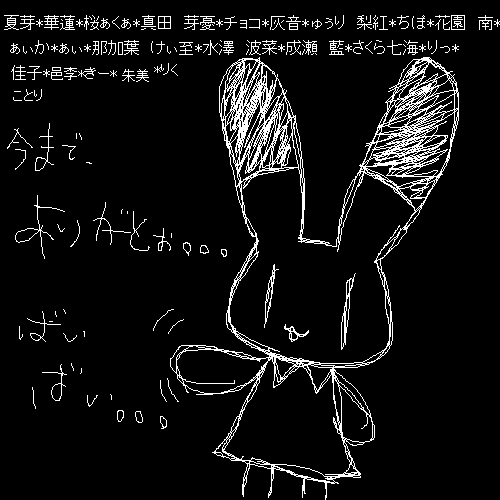 夏芽*華蓮*桜ぁくぁ*真田　芽憂*チョコ*灰音*ゅぅり　梨紅*ちほ*花園　南*
ぁぃか*ぁぃ*那加葉　けぃ至*水澤　波菜*成瀬　藍*さくら七海*りっ*
佳子*邑李*きー*朱美*りく
ことり
今まで、
ありがとぉ。。。
ばぃ
ばぃ。。。